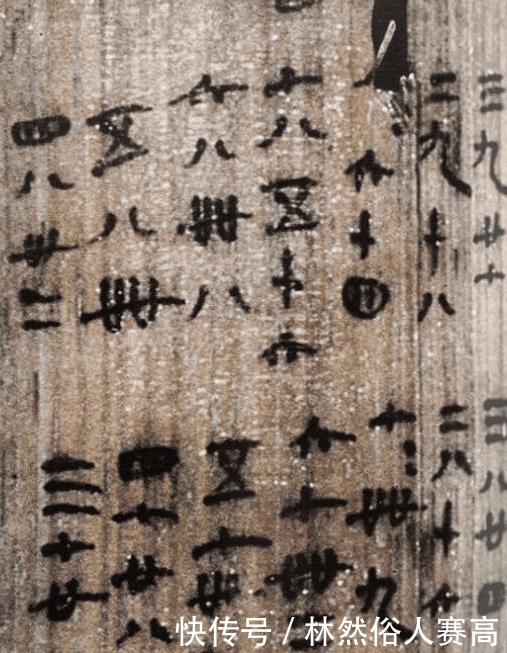 三九廿七
二九十八
六十四
七八五十六
六八卌八
五八卌
四八卅二
三八廿四
二八十六
七=卌九
六七卌
五七卅
四七廿八
三七廿
快传号 / 林然俗人赛高